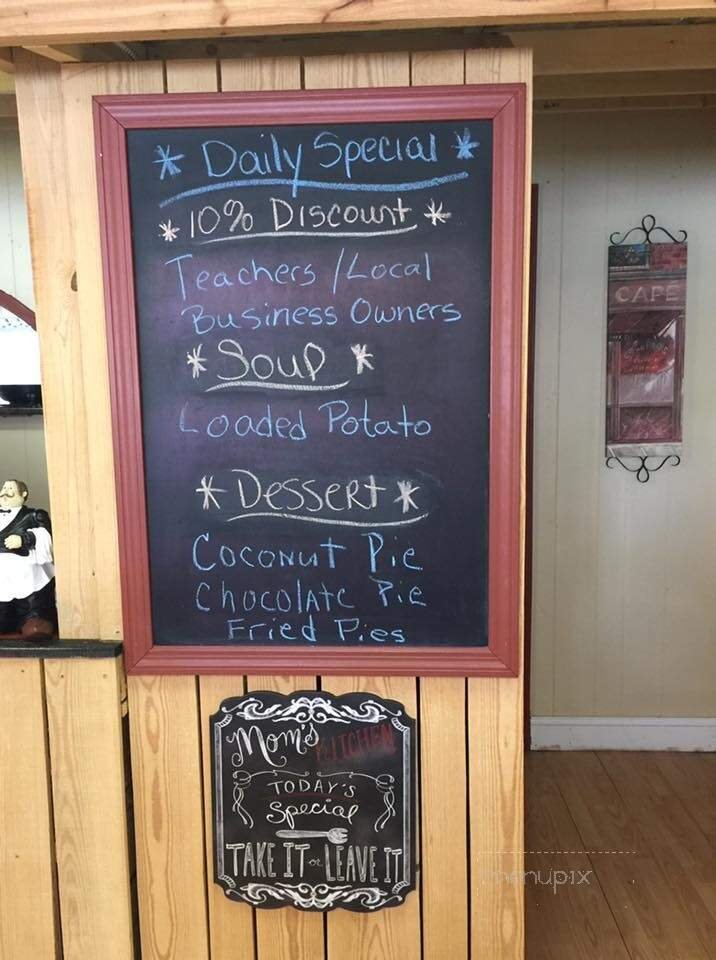 * Daily Special *
* 10% Discount *
Teachers / Local
Business Owners
* Soup *
Loaded Potato
* Dessert *
Coconut Pie
Chocolate Pie
Fried Pies
CAFE
Mom's KITCHEN
TODAY'S
Special
TAKE IT or LEAVE IT
menupix